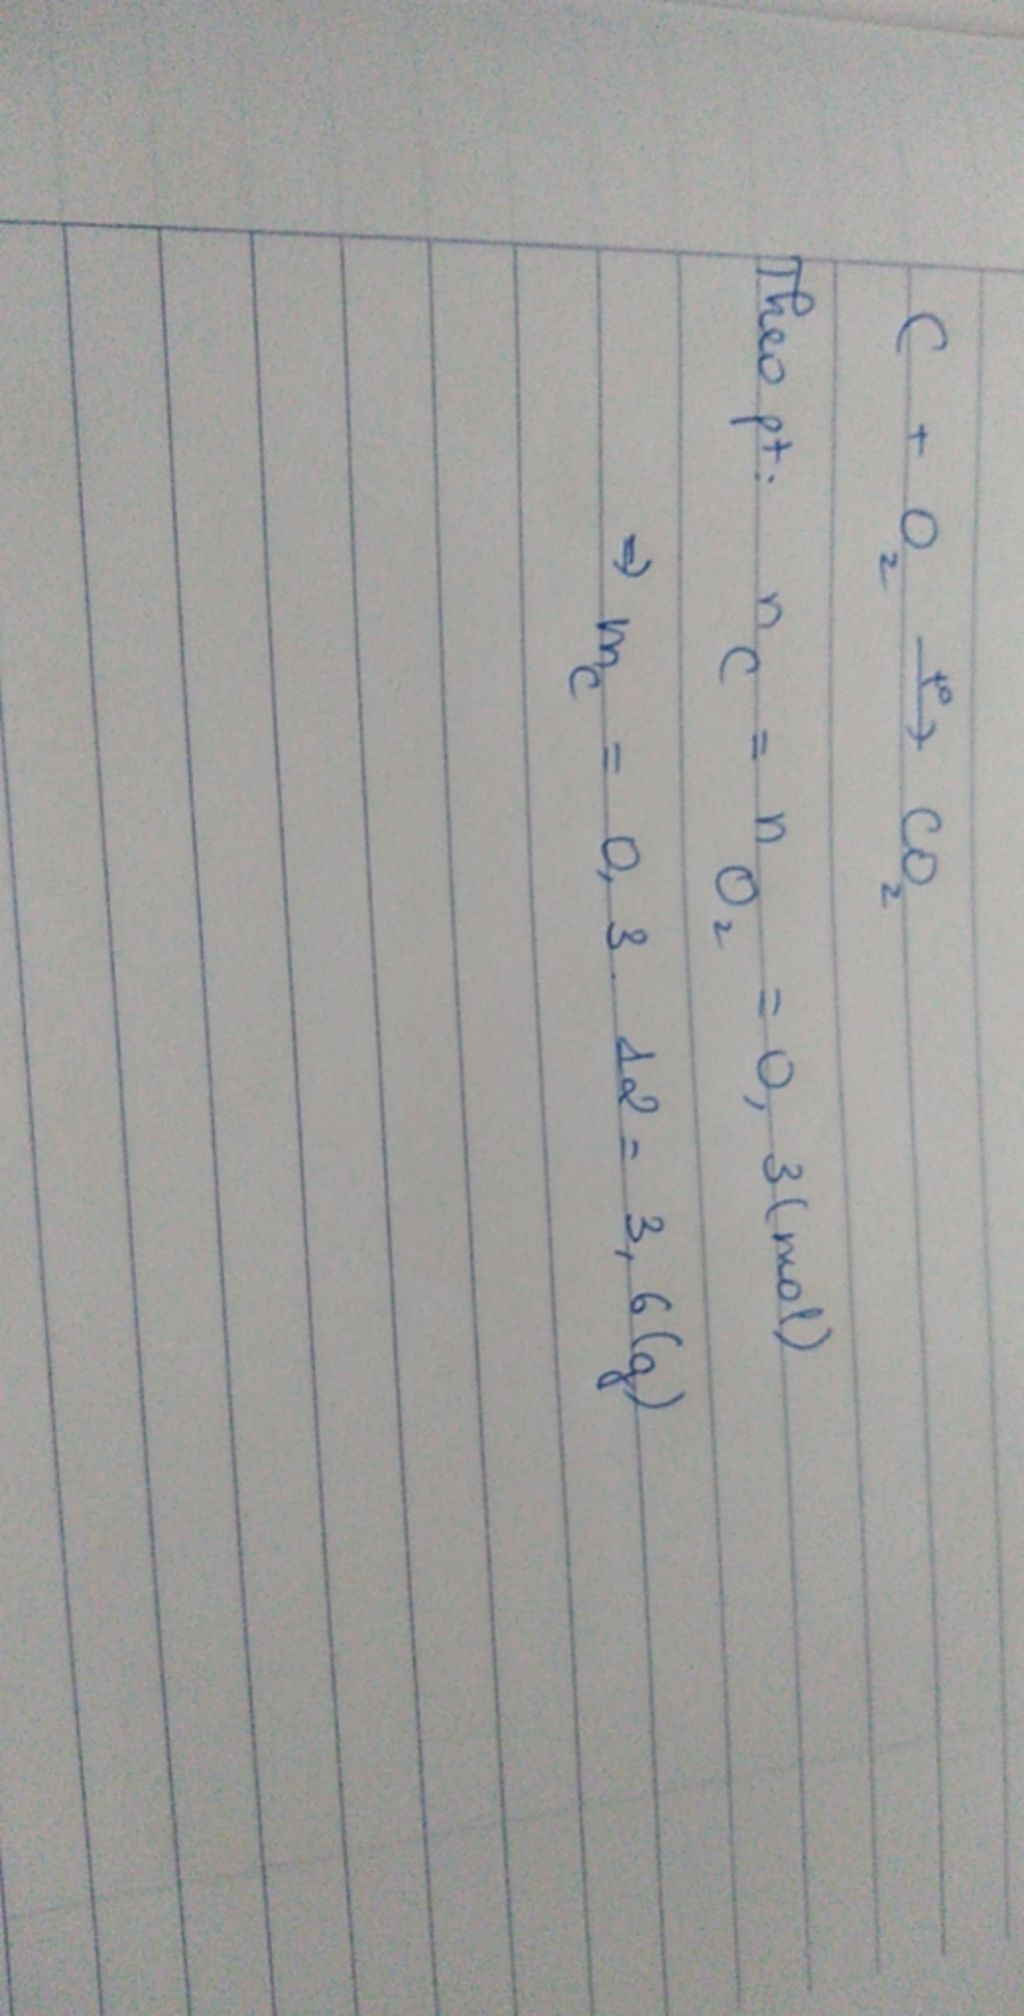 C + O₂ —t°→ CO₂
Theo pt: n_C = n_O₂ = 0,3 (mol)
⇒ m_C = 0,3 . 12 = 3,6 (g)